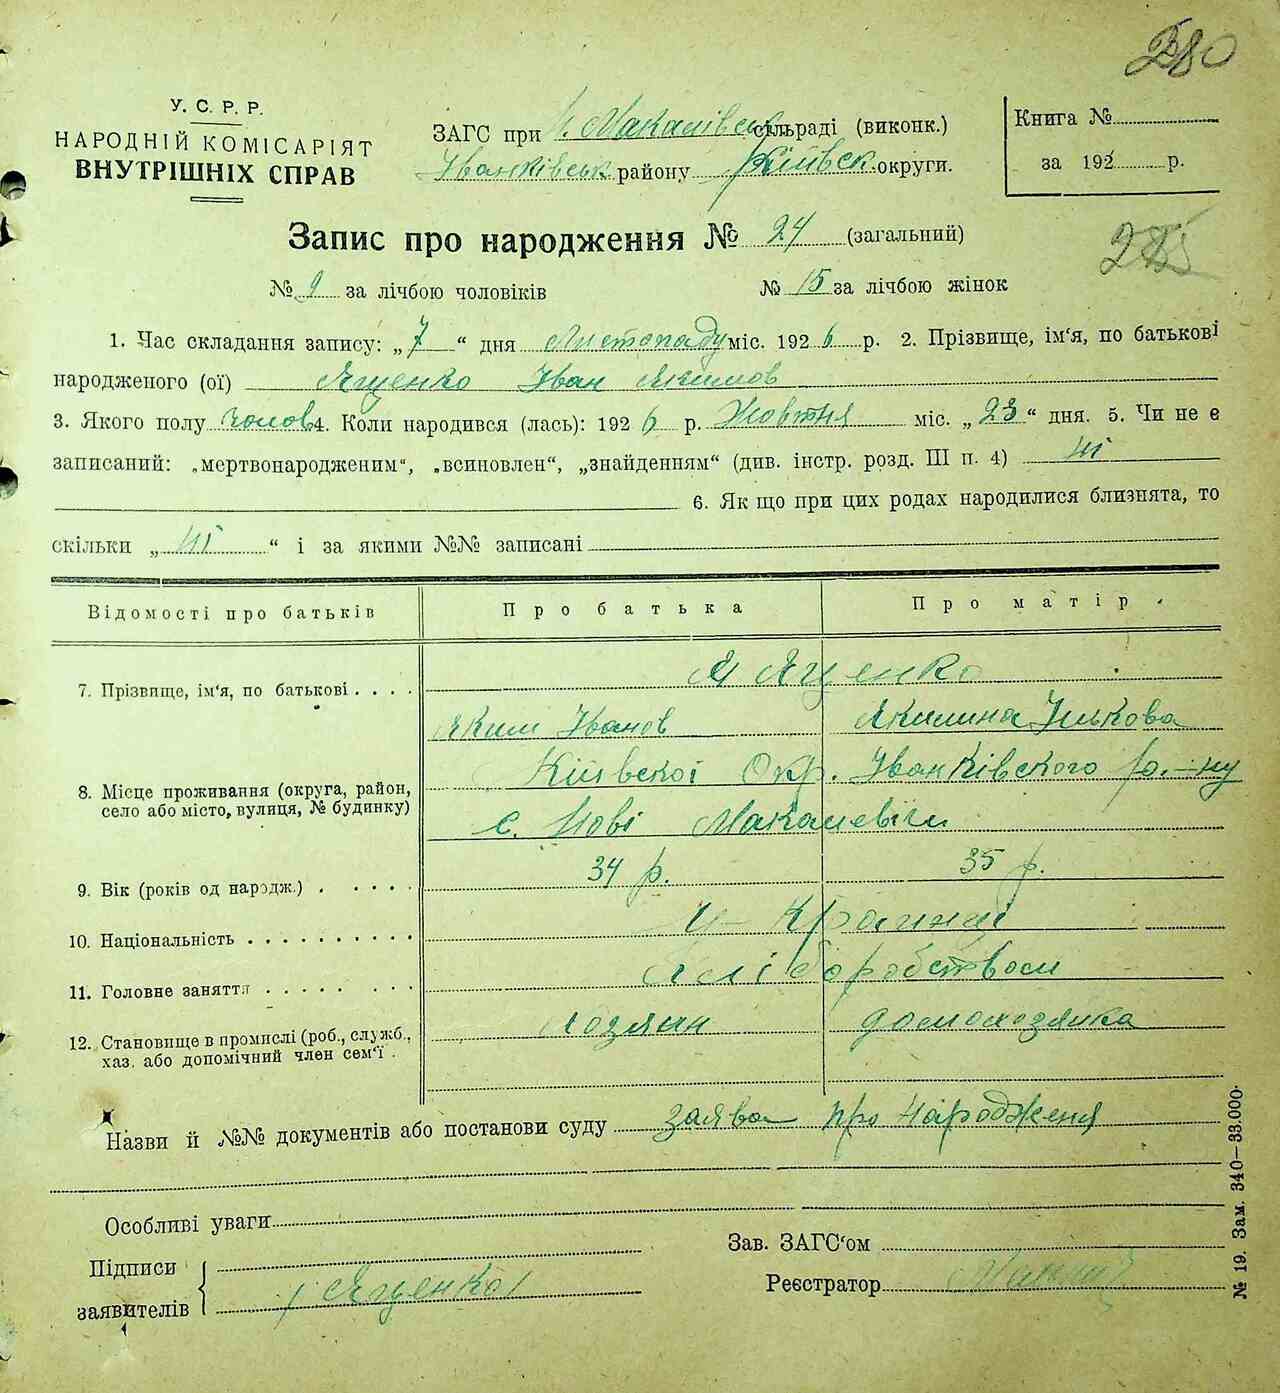 280
У. С. Р. Р.
НАРОДНІЙ КОМІСАРІЯТ
ВНУТРІШНІХ СПРАВ
ЗАГС при Н. Макалівськ сільраді (виконк.)
Іванківськ району Київськ округи.
Книга №
за 192 р.
Запис про народження № 24 (загальний)
№ 9 за лічбою чоловіків № 15 за лічбою жінок
1. Час складання запису: „7“ дня Листопаду міс. 1926 р. 2. Прізвище, ім'я, по батькові
народженого (ої) Ященко Іван Якимов
3. Якого полу чолов 4. Коли народився (лась): 1926 р. Жовтня міс. „23“ дня. 5. Чи не є
записаний: „мертвонародженим“, „всиновлен“, „знайденням“ (див. інстр. розд. III п. 4) ні
6. Як що при цих родах народилися близнята, то
скільки „ні“ і за якими №№ записані
Відомості про батьків Про батька Про матір
7. Прізвище, ім'я, по батькові Ященко
Яким Іванов Якилина Ількова
8. Місце проживання (округа, район, село або місто, вулиця, № будинку) Київскої Окр. Іванківского ра-ну
с. Нові Макалевичи
9. Вік (років од народж.) 34 р. 35 р.
10. Національність У-країнці
11. Головне заняття хліборобством
12. Становище в промислі (роб., служб., хаз. або допомічний член сем'ї хозяин домохозяйка
Назви й №№ документів або постанови суду заява про народженя
Особливі уваги
Підписи
заявителів Ященко
Зав. ЗАГС'ом
Реєстратор
№ 19. Зам. 340—33.000.